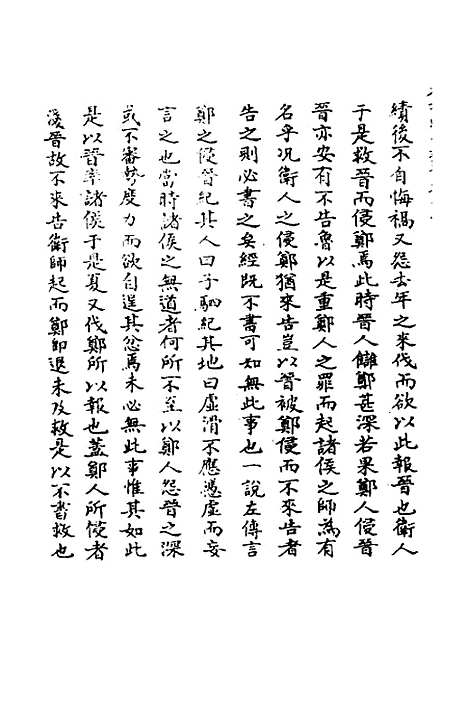 績後不自悔禍又怨去年之来伐而欲以此報晉也衛人
于是救晉而侵鄭焉此時晉人讎鄭甚深若果鄭人侵晉
晉亦安有不告魯以是重鄭人之罪而起諸侯之師為有
名乎况衛人之侵鄭猶来告豈以晉被鄭侵而不来告者
告之則必書之矣經既不書可知無此事也一說左傳言
鄭之侵晉紀其人曰子駟紀其地曰虛滑不應憑虛而妄
言之也當時諸侯之無道者何所不至以鄭人怨晉之深
或不審勢度力而欲自逞其忿焉未必無此事惟其如此
是以晉率諸侯于是夏又伐鄭所以報也蓋鄭人所侵者
淺晉故不来告衛師起而鄭即退未及救是以不書救也